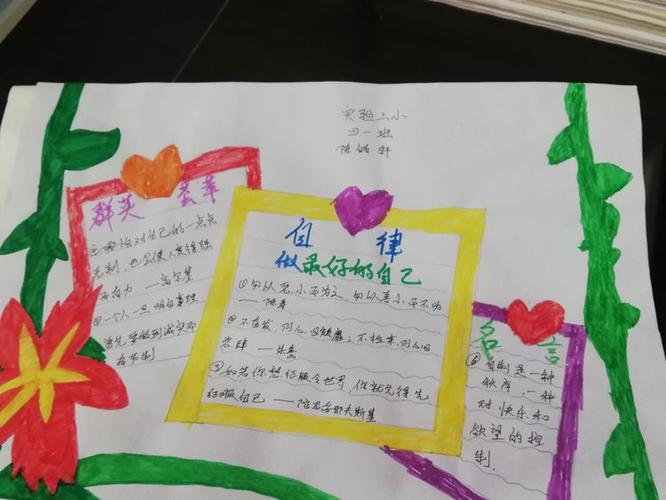 实验二小
四一班
陈皓轩
群英 荟萃
⑤哪怕对自己的一点点
克制,也会使人变得强
而有力 ——高尔基
一个人一旦明白事理
首先要做到诚实而
有节制
自 律
做最好的自己
①勿以恶小而为之,勿以善小而不为
——陈寿
不检束,则心日
恣肆 ——朱熹
③如若你想征服全世界,你就先得先
征服自己 ——陀思妥耶夫斯基
名 言
自制是一种
秩序,一种
对快乐和
欲望的控
制.